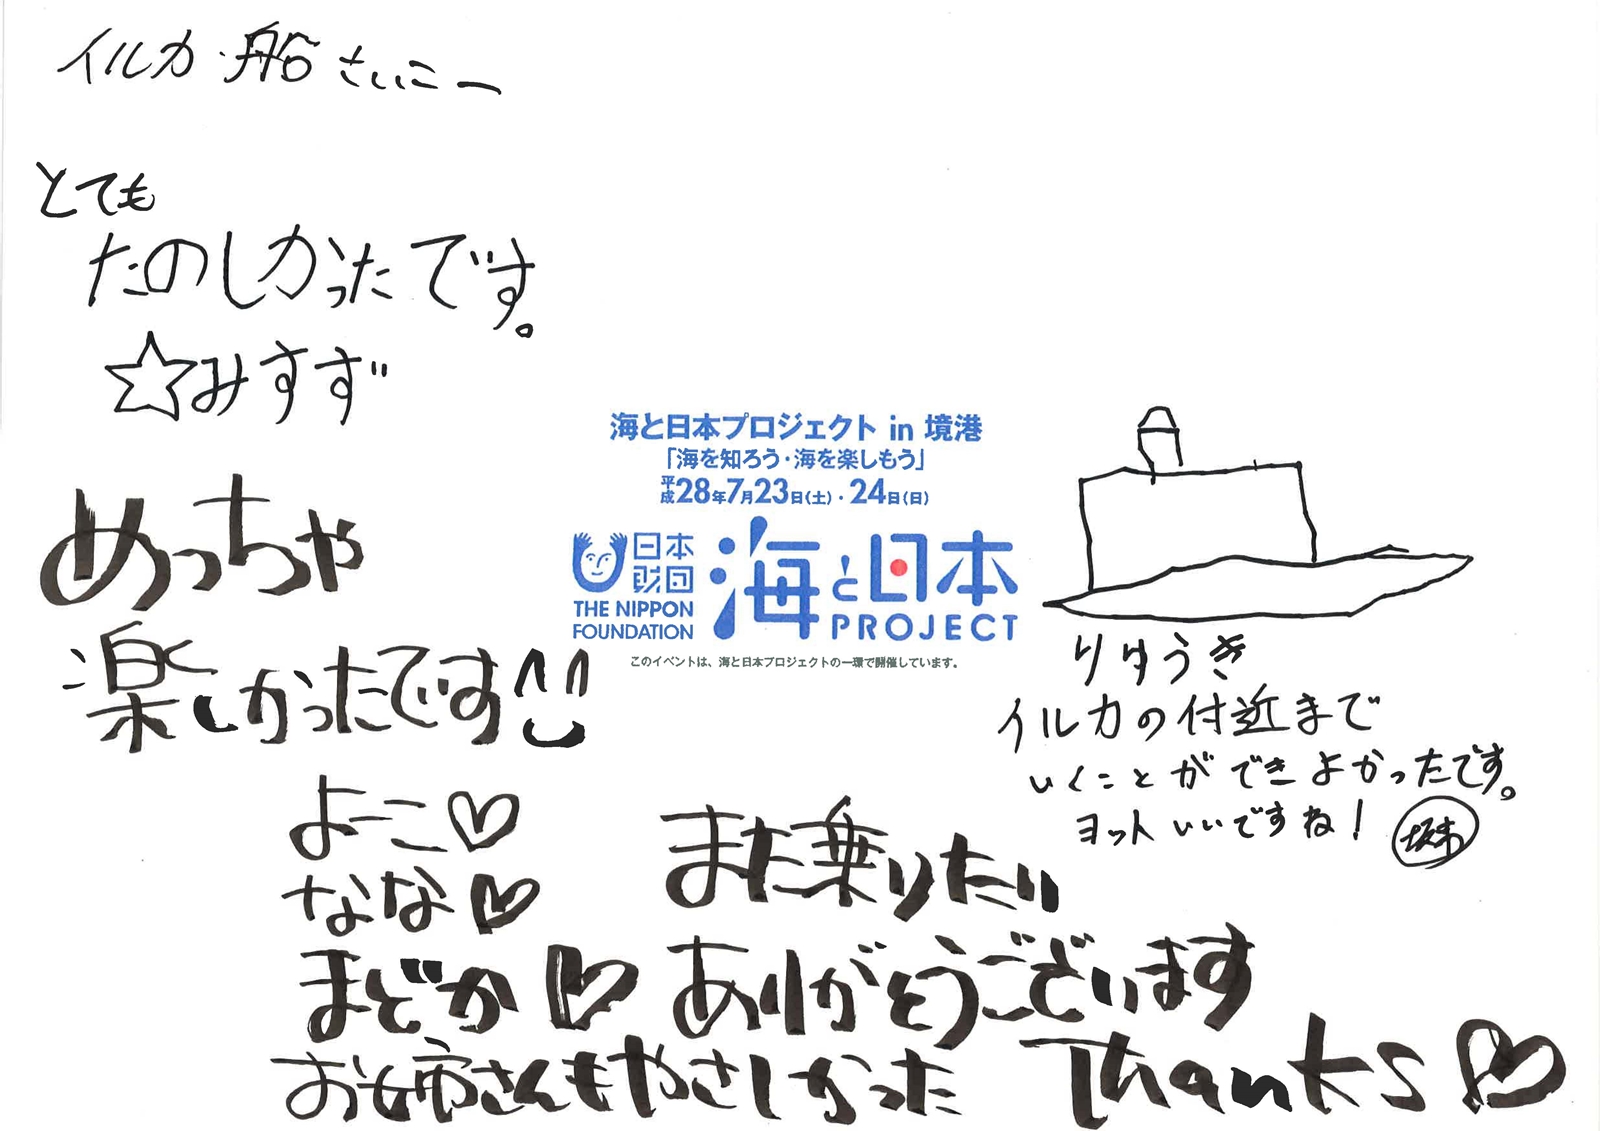 イルカ・船さいこー
とても
たのしかったです。
☆みすず
めっちゃ
楽しかったです
よーこ♡
なな♡
まどか♡
お姉さんもやさしかった
海と日本プロジェクト in 境港
「海を知ろう・海を楽しもう」
平成28年7月23日(土)・24日(日)
日本
財団
THE NIPPON
FOUNDATION
海と日本
PROJECT
このイベントは、海と日本プロジェクトの一環で開催しています。
りゆうき
イルカの付近まで
いくことができよかったです。
ヨットいいですね!
また乗りたい
ありがとうございます
Thanks♡